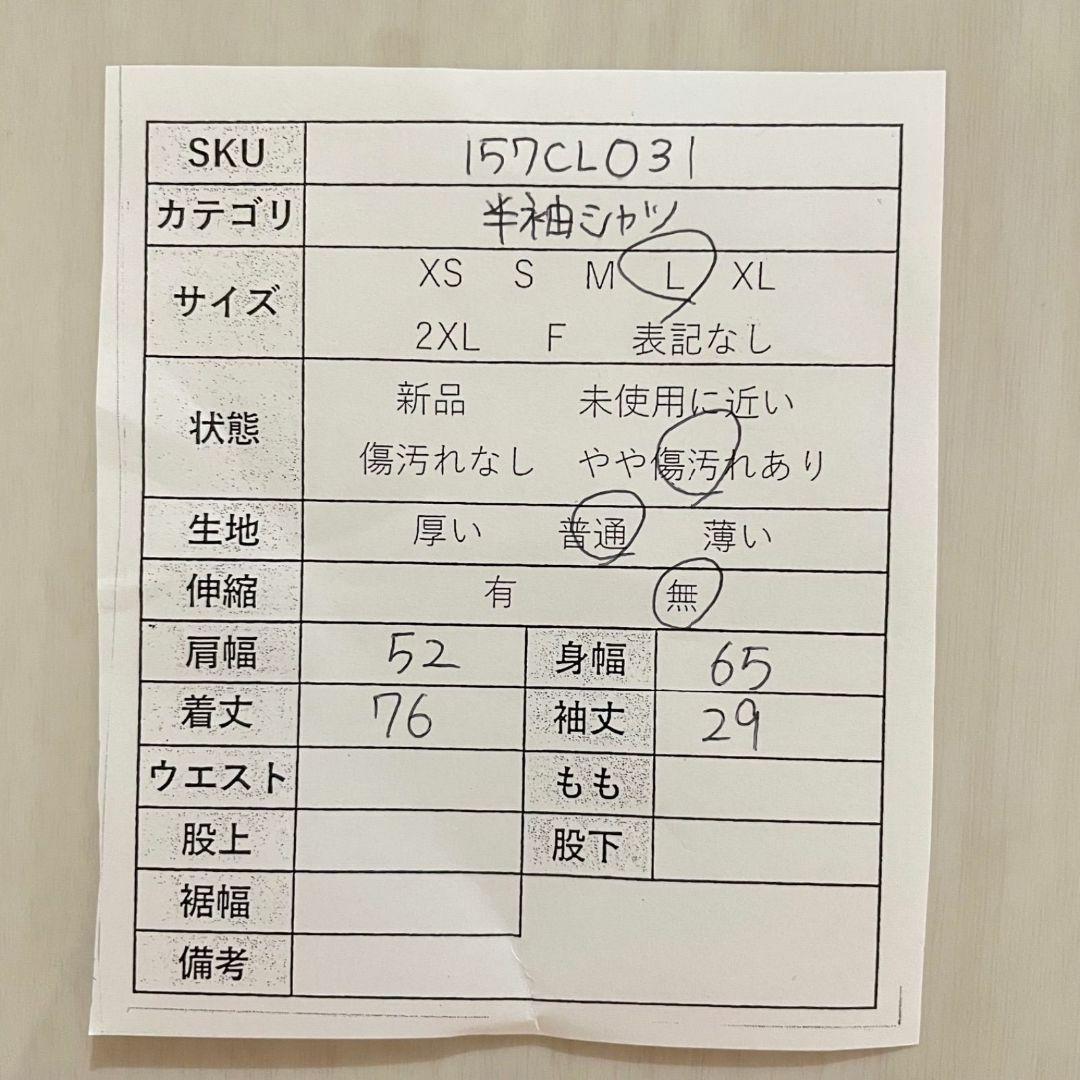 SKU 157CL031
カテゴリ 半袖シャツ
サイズ XS S M L XL
2XL F 表記なし
状態 新品 未使用に近い
傷汚れなし やや傷汚れあり
生地 厚い 普通 薄い
伸縮 有 無
肩幅 52 身幅 65
着丈 76 袖丈 29
ウエスト もも
股上 股下
裾幅
備考